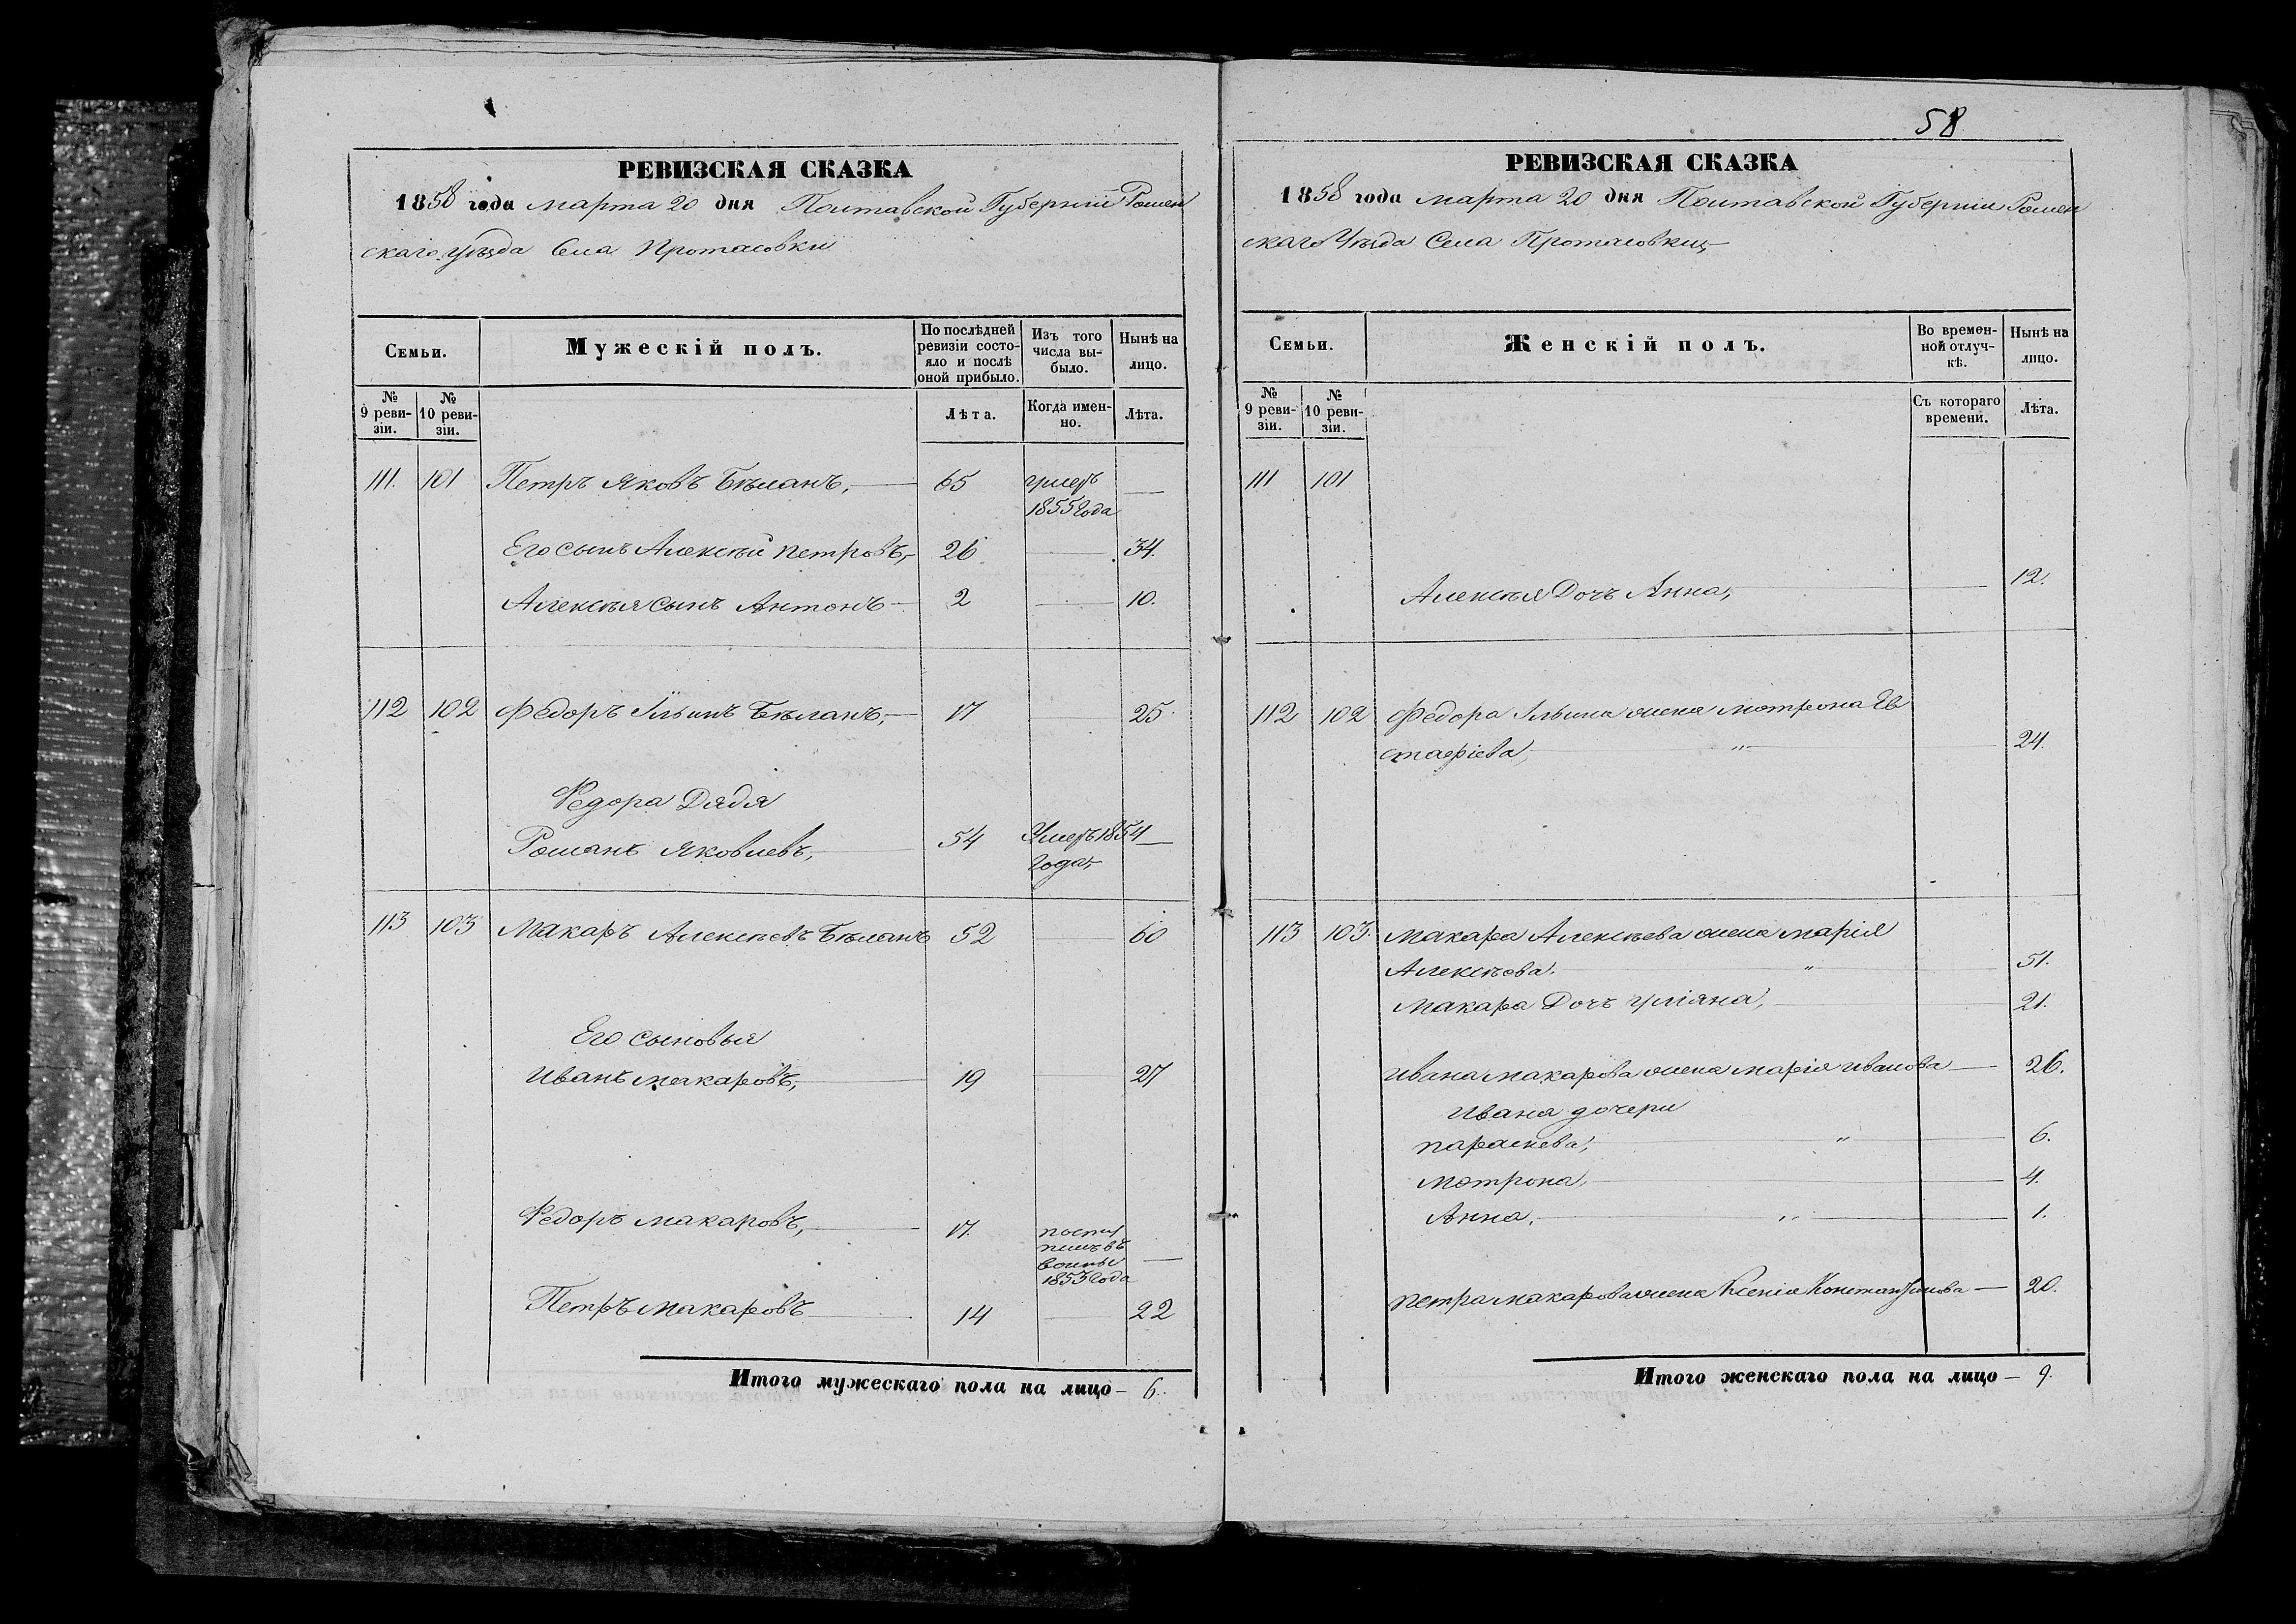 РЕВИЗСКАЯ СКАЗКА
1858 года марта 20 дня Полтавской Губерніи Ромен
скаго уѣзда Села Протасовки
Семьи.
Мужескій полъ.
По послѣдней ревизіи состояло и послѣ оной прибыло.
Изъ того числа выбыло.
Нынѣ на лицо.
№ 9 ревизіи.
№ 10 ревизіи.
Лѣта.
Когда именно.
Лѣта.
111. 101 Петръ Яковъ Бѣланъ, — 65 умеръ —
1855 года
Его сынъ Алексѣй петровъ, — 26 — 34.
Алексѣя сынъ Антонъ — 2 — 10.
112 102 Федоръ Ильинъ Бѣланъ, — 17 — 25.
Федора Дядя
Романъ Яковлевъ, — 54 Умеръ 1854 —
года,
113 103 Макаръ Алексѣевъ Бѣланъ 52 — 60
Его сыновья
Иванъ макаровъ, — 19 — 27
Федоръ макаровъ, — 17. посту
пилъ въ
—
1853 года
Петръ макаровъ — 14 — 22
Итого мужескаго пола на лицо — 6.
58
РЕВИЗСКАЯ СКАЗКА
1858 года марта 20 дня Полтавской Губерніи Ромен
скаго Уѣзда Села Протасовки,
Семьи.
Женскій полъ.
Во временной отлучкѣ.
Нынѣ на лицо.
№ 9 ревизіи.
№ 10 ревизіи.
Съ котораго времени.
Лѣта.
111 101
Алексѣя Дочъ Анна, — 12.
112 102 Федора Ильина жена мотрона Ев
стафіева, — " — 24.
113 103. Макара Алексѣева жена марія
Алексѣева. — " — 51.
Макара Дочъ уліяна, — 21.
Ивана макарова жена марія иванова — 26.
Ивана дочери
параскева, — " — 6.
мотрона, — 4.
Анна, — " — 1.
петра макарова жена Ксенія Константинова — 20.
Итого женскаго пола на лицо — 9.